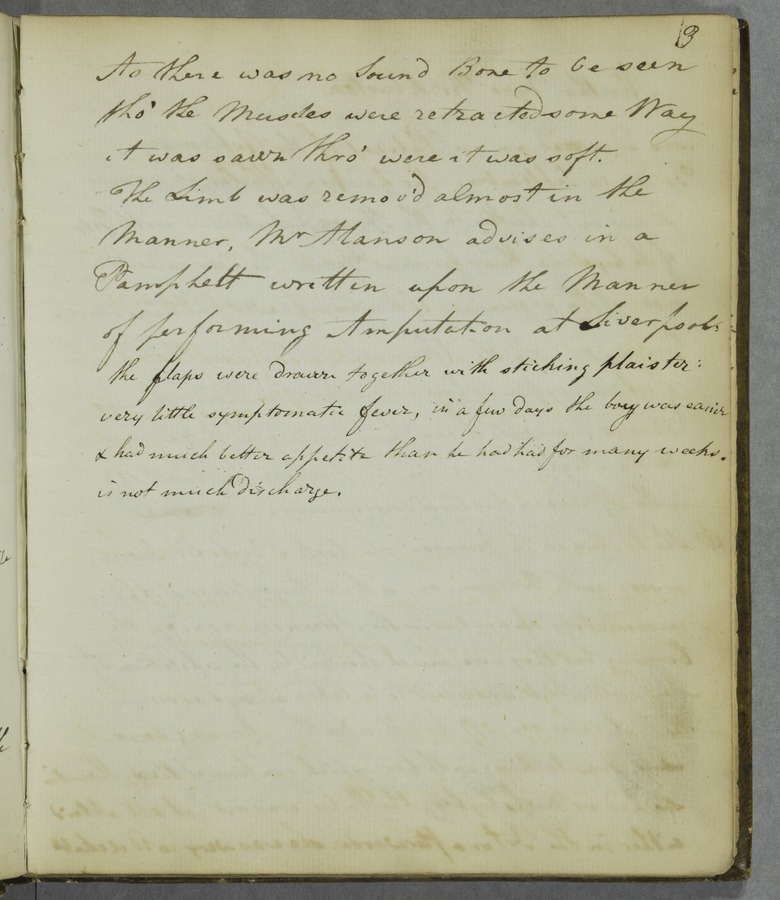 13
As there was no Sound Bone to be seen
tho' the Muscles were retracted some Way
it was sawn thro' were it was soft.
The Limb was remov'd almost in the
Manner, Mr Alanson advises in a
Pamphlett written upon the Manner
of performing Amputation at Liverpool:
the flaps were drawn together with sticking plaister:
very little symptomatic fever, in a few days the boy was easier
& had much better appetite than he had had for many weeks.
is not much discharge.